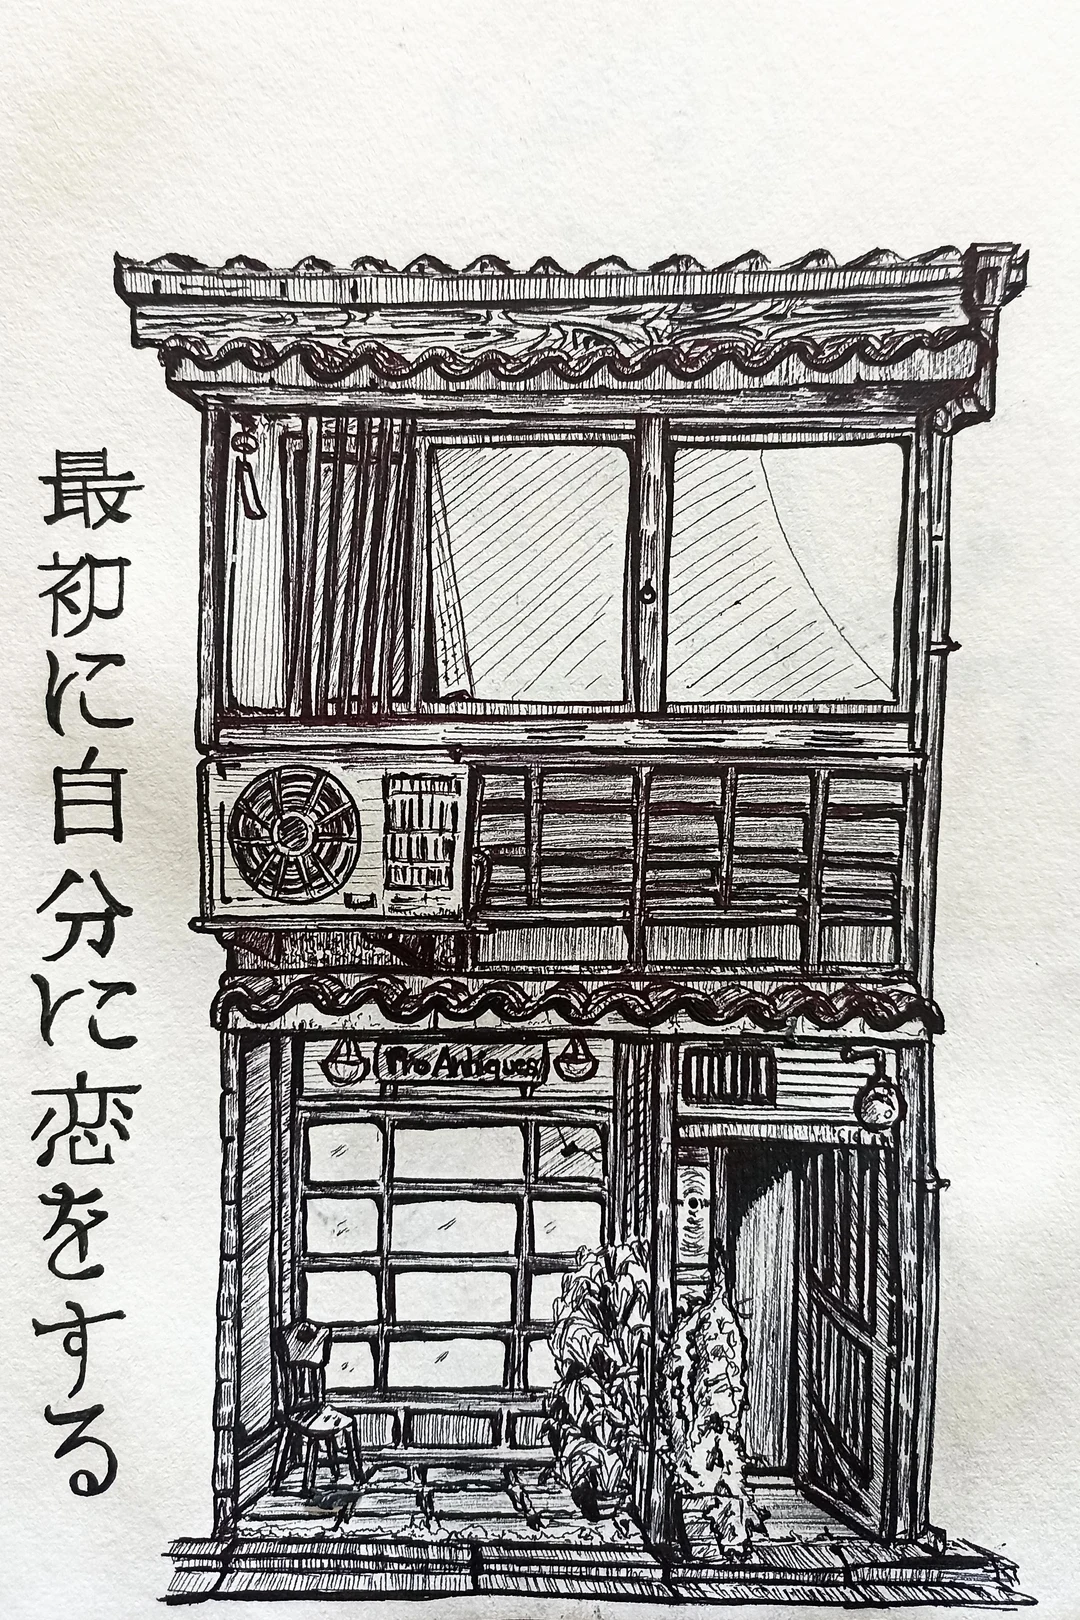 最初に自分に恋をする
Pro Antiques